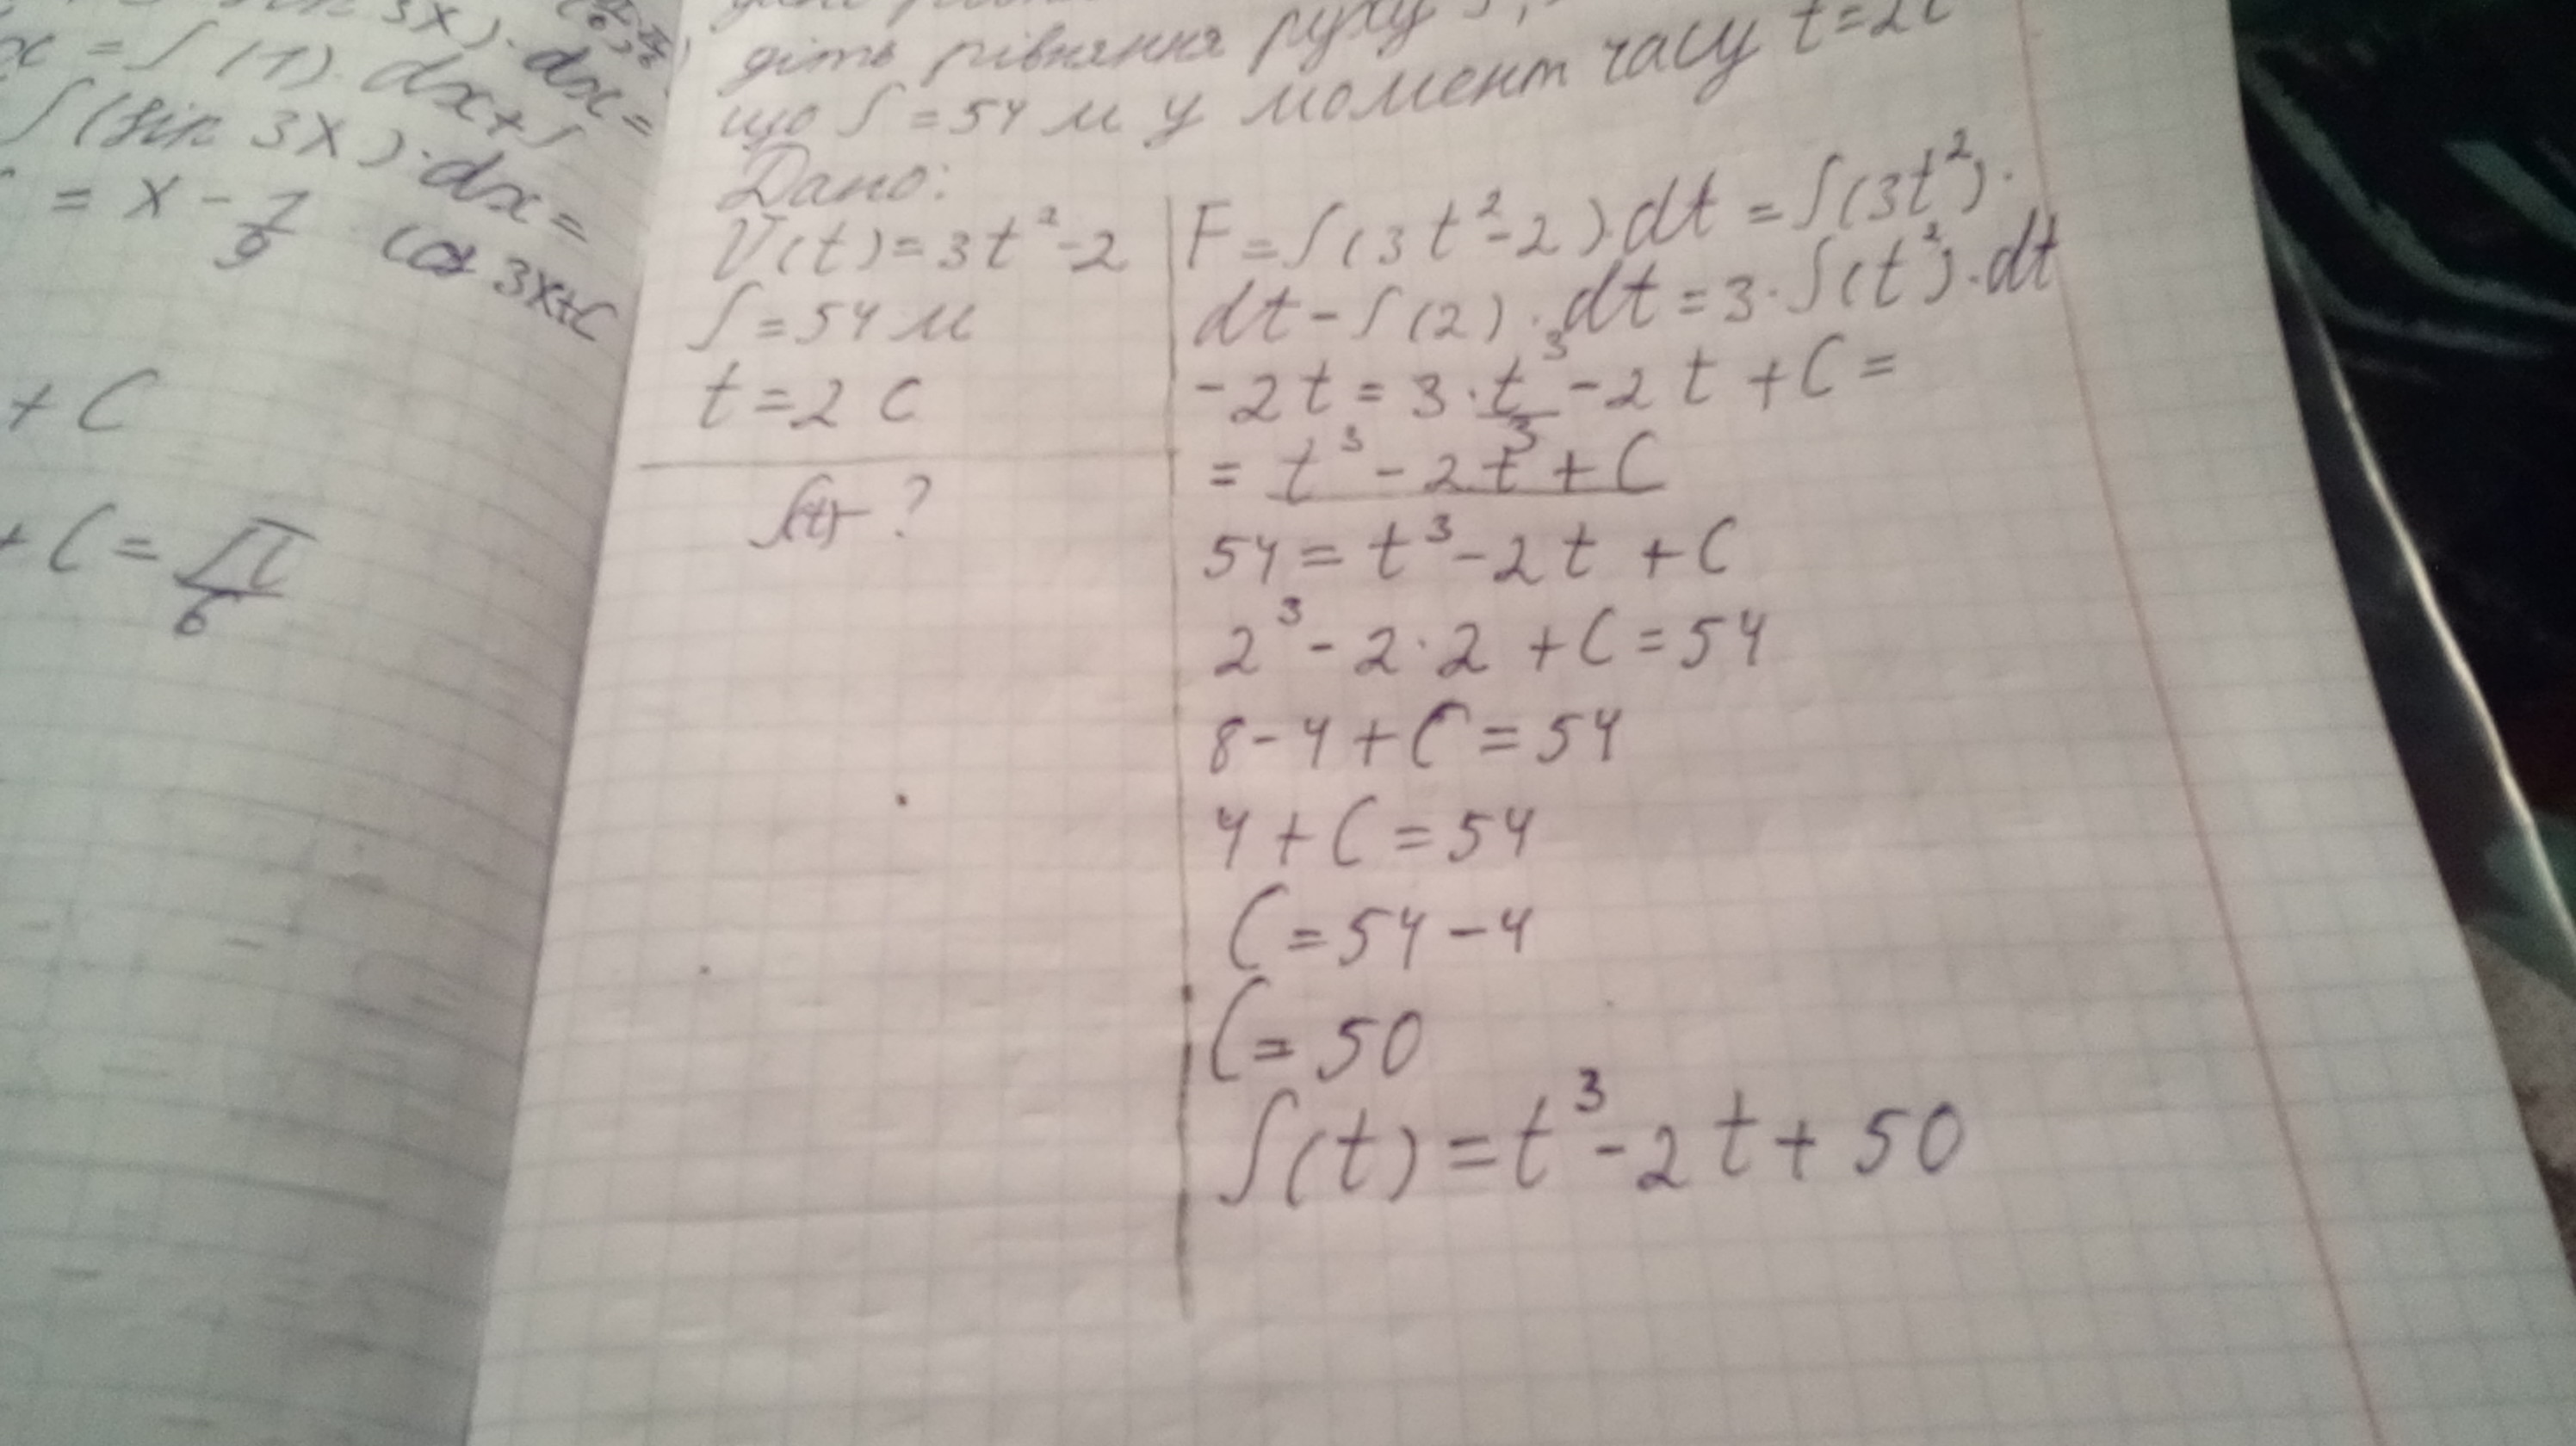 3x). dx =
= ∫(1). dx + ∫
∫(sin 3x). dx =
= x -
cos 3x + C
+ C
+ C = π/6
діть рівняння руху
що S = 54 м у момент часу t = 2c
Дано:
V(t) = 3t² - 2
S = 54 м
t = 2 c
S(t) - ?
F = ∫(3t² - 2). dt = ∫(3t²).
dt - ∫(2). dt = 3 · ∫(t²). dt
- 2t = 3 · t³/3 - 2t + C =
= t³ - 2t + C
54 = t³ - 2t + C
2³ - 2 · 2 + C = 54
8 - 4 + C = 54
4 + C = 54
C = 54 - 4
C = 50
S(t) = t³ - 2t + 50